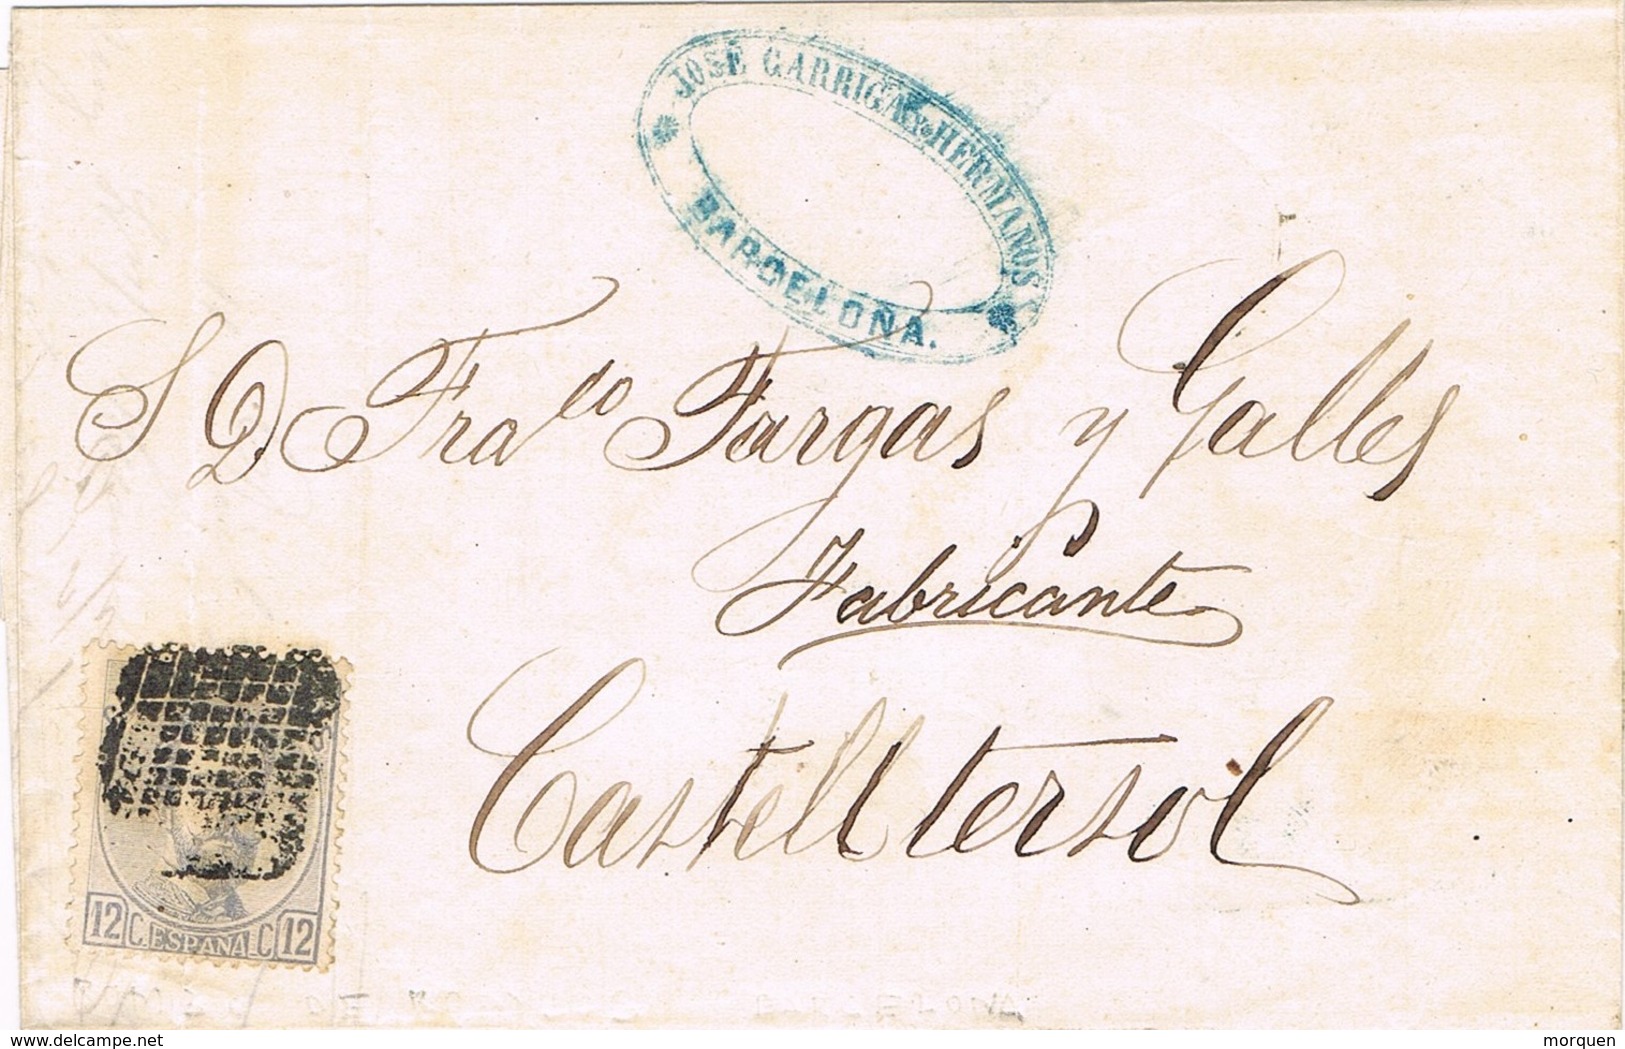 JOSÉ GARRIGA Y HERMANOS
BARCELONA.
S. D. Franco Fargas y Galles
Fabricante
Castelltersol
12 C. ESPAÑA C 12
delcampe.net
morquen